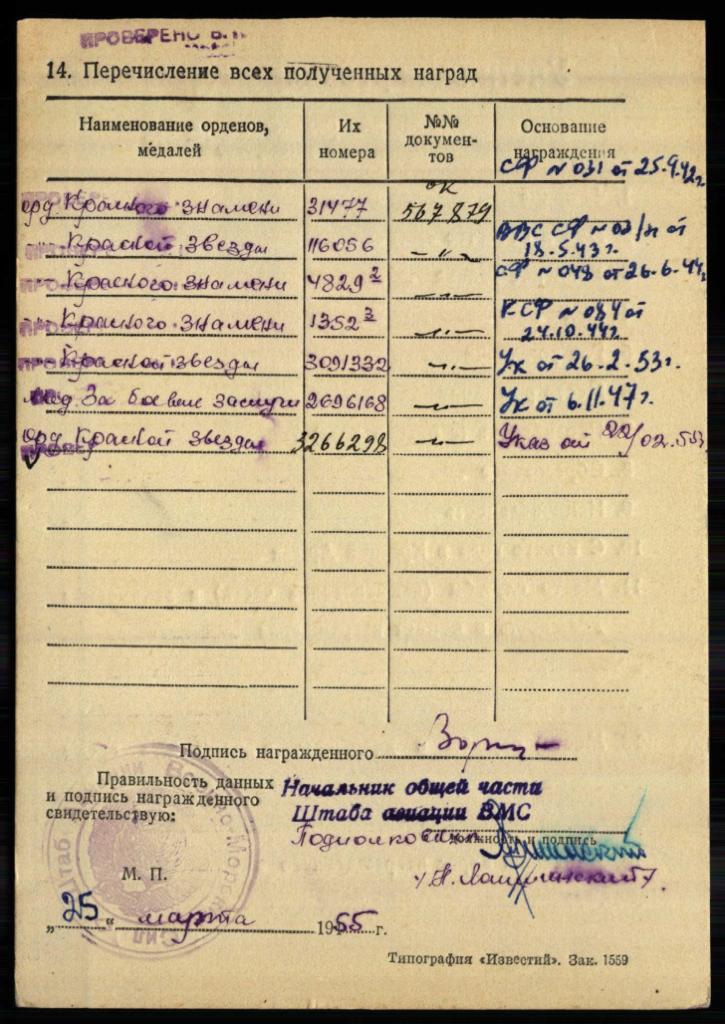 ПРОВЕРЕНО
14. Перечисление всех полученных наград
Наименование орденов, медалей
Их номера
№№ документов
Основание награждения
орд. Красного знамени 31477 ОК 567879 СФ № 031 от 25.9.42г.
-"- Красной звезды 116056 -"- ВВС СФ № 02/н от 18.5.43г.
-"- Красного знамени 4829 2 -"- СФ № 048 от 26.6.44г.
-"- Красного знамени 1352 3 -"- КСФ № 084 от 24.10.44г.
-"- Красной звезды 3091332 -"- Ук от 26.2.53г.
Мед. За боевые заслуги 2696168 -"- Ук от 6.11.47г.
Орд. Красной звезды 3266298 -"- Указ от 22/02.55г.
Подпись награжденного
Правильность данных
и подпись награжденного
свидетельствую:
Начальник общей части
Штаба авиации ВМС
Подполковник
должность и подпись
М. П.
„25" марта 1955 г.
Типография «Известий». Зак. 1559